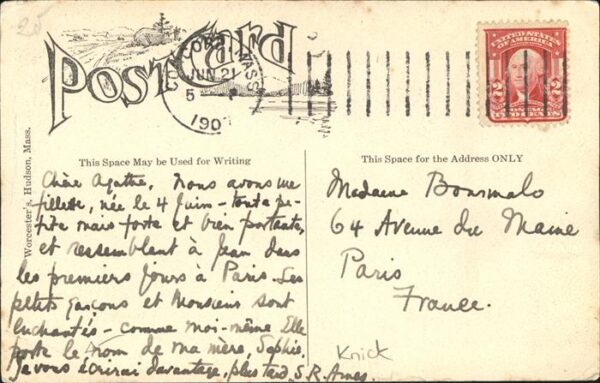 25
Post Card
CONCORD, MASS.
JUN 21
5
190
UNITED STATES
OF AMERICA
2 2
TWO CENTS
Worcester's, Hudson, Mass.
This Space May be Used for Writing
Chère Agathe, Nous avons une
fillette, née le 4 Juin - toute pe-
tite mais forte et bien portante,
et ressemblant à Jean dans
les premiers jours à Paris. Les
petits garçons et Monsieur sont
enchantés - comme moi-même. Elle
porte le nom de ma mère, Sophie.
Je vous écrirai davantage, plus tard. S. R. Ames.
This Space for the Address ONLY
Madame
64 Avenue du Maine
Paris
France.
Knick